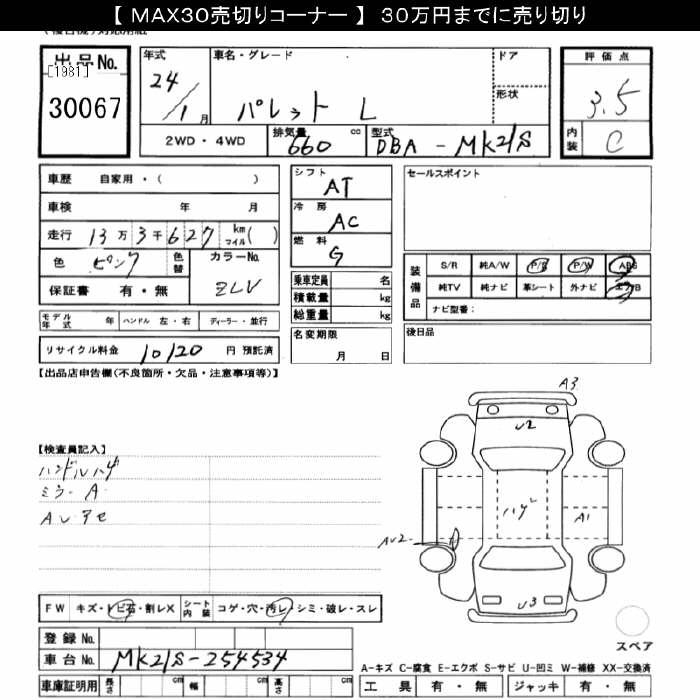 【 MAX30売切りコーナー 】 30万円までに売り切り
出品No.
[1981]
30067
年式
24/1月
車名・グレード
パレット L
ドア
形状
2WD・4WD
排気量 660 cc
型式 DBA-MK21S
評価点
3.5
内装 C
車歴 自家用・( )
車検 年 月
走行 13万3千627 km マイル( )
色 ピンク 色替
カラーNo. ZLV
保証書 有・無
モデル年式 年 ハンドル 左・右 ディーラー・並行
リサイクル料金 10120 円 預託済
シフト AT
冷房 AC
燃料 G
乗車定員 名
積載量 kg
総重量 kg
名変期限
月 日
セールスポイント
装備品
S/R 純A/W P/S P/W ABS
純TV 純ナビ 革シート 外ナビ エアB
ナビ型番:
後日品
【出品店申告欄(不良箇所・欠品・注意事項等)】
【検査員記入】
ハンドルハゲ
ミラーA
AUアセ
A3
U2
ハゲ
A1
AU2
U3
スペア
FW キズ・トビ石・割レX シート内装 コゲ・穴・汚レ・シミ・破レ・スレ
登録No.
車台No. MK21S-254534
車庫証明用 長さ cm 幅 cm 高さ cm
A-キズ C-腐食 E-エクボ S-サビ U-凹ミ W-補修 XX-交換済
工具 有・無 ジャッキ 有・無